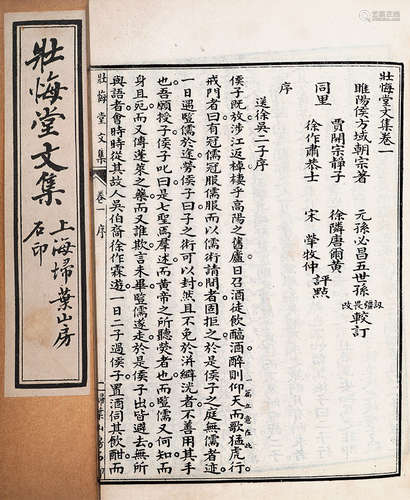 壯悔堂文集
上海埽葉山房
石印
壯悔堂文集卷一
睢陽侯方域朝宗著
元孫必昌五世孫
較訂
賈開宗靜子
徐隣唐爾黃
同里
評點
徐作肅恭士
宋犖牧仲
序
送徐吳二子序
侯子既放涉江返棹棲乎高陽之舊廬日召酒徒飲醇酒醉則仰天而歌猛虎行
戒門者曰有冠儒冠服儒服而以儒術請間者固拒之於是侯子之庭無儒者迹
一日遇豎儒於途勞侯子曰子之術可以封然且不免於洴澼洸者不善用其手
也吾頫授子侯子叱曰是七聖馬羣述而黃帝之所聽熒者也豎儒又何知而
身且宛而又傳蓬萊之藥而人誰欺言未畢豎儒遂走於是侯子出皆避去無所
與語者會時時從其故人吳伯裔徐作霖遊一日二子過侯子置酒伺其飲酣而
壯悔堂文集
卷一 序
一 埽葉山房石印